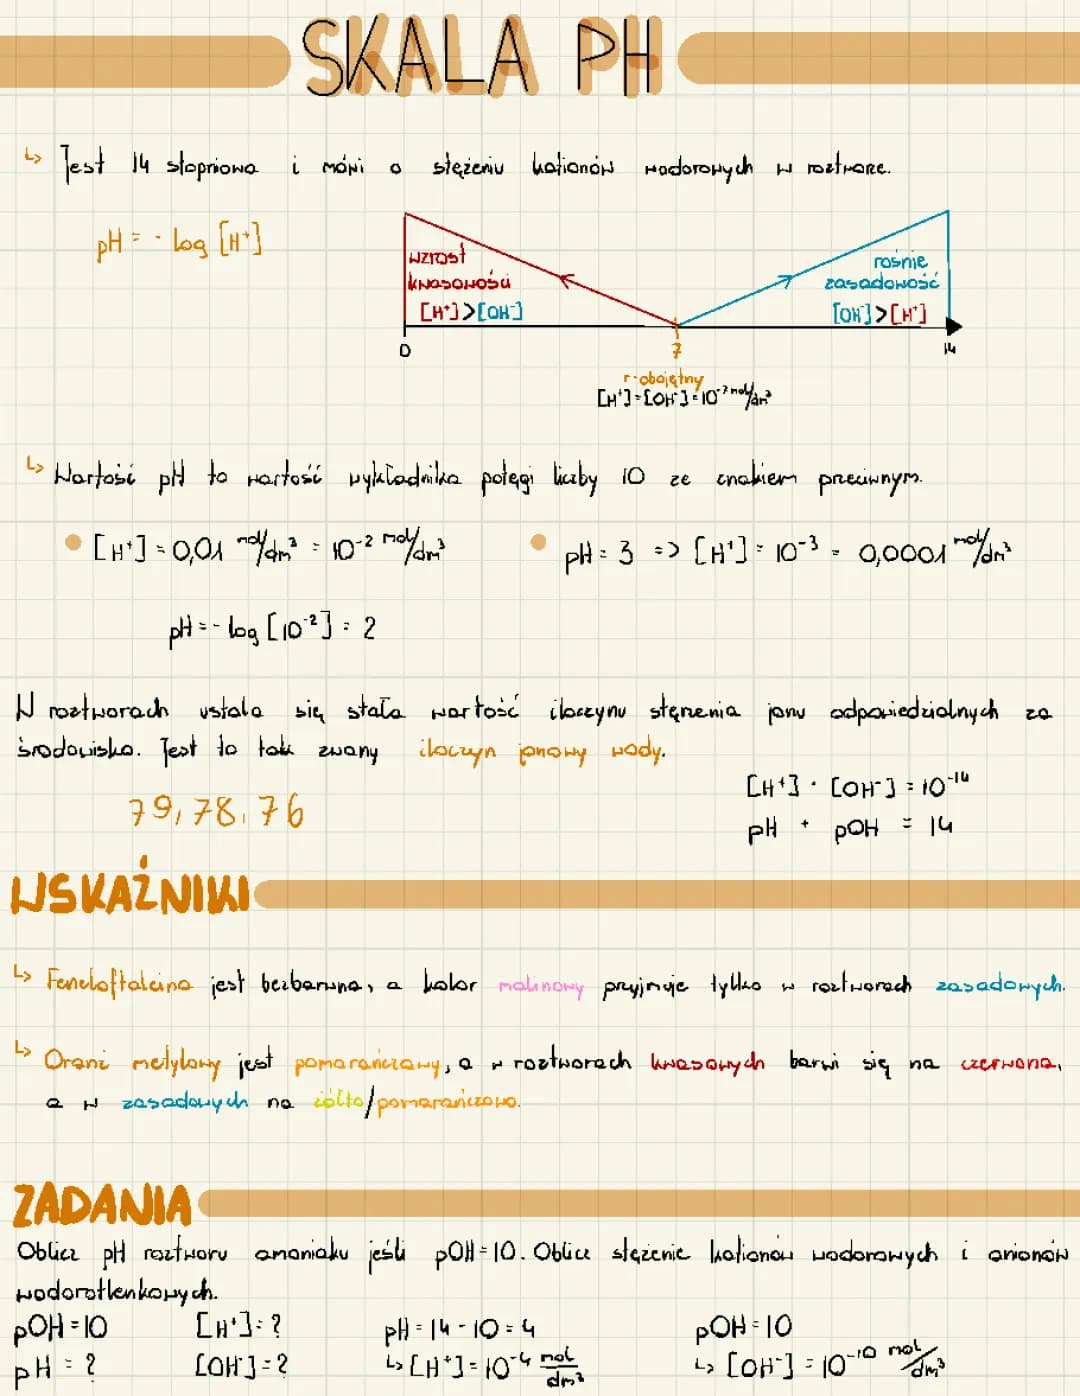 SKALA PH
↳ Jest 14 stopniowa i mówi o stężeniu kationów wodorowych w roztworze.
pH = - log [H⁺]
wzrost
kwasowości
[H⁺]>[OH⁻]
rośnie
zasadowość
[OH⁻]>[H⁺]
0
7
14
r-r obojętny
[H⁺]=[OH⁻]=10⁻⁷ mol/dm³
↳ Wartość pH to wartość wykładnika potęgi liczby 10 ze znakiem przeciwnym.
• [H⁺] = 0,01 mol/dm³ = 10⁻² mol/dm³
• pH = 3 => [H⁺] = 10⁻³ = 0,0001 mol/dm³
pH = - log [10⁻²] = 2
W roztworach ustala się stała wartość iloczynu stęrzenia jonu odpowiedzialnych za
środowisko. Jest to tak zwany iloczyn jonowy wody.
[H⁺] · [OH⁻] = 10⁻¹⁴
79, 78, 76
pH + pOH = 14
WSKAŹNIKI
↳ Feneloftaleina jest bezbarwna, a kolor malinowy przyjmuje tylko w roztworach zasadowych.
↳ Oranż metylowy jest pomarańczowy, a w roztworach kwasowych barwi się na czerwono,
a w zasadowych na żółto/pomarańczowo.
ZADANIA
Oblicz pH roztworu amoniaku jeśli pOH = 10. Oblicz stężenie kationów wodorowych i anionów
wodorotlenkowych.
pOH = 10 [H⁺] = ? pH = 14 - 10 = 4 pOH = 10
pH = ? [OH⁻] = ? ↳ [H⁺] = 10⁻⁴ mol/dm³ ↳ [OH⁻] = 10⁻¹⁰ mol/dm³